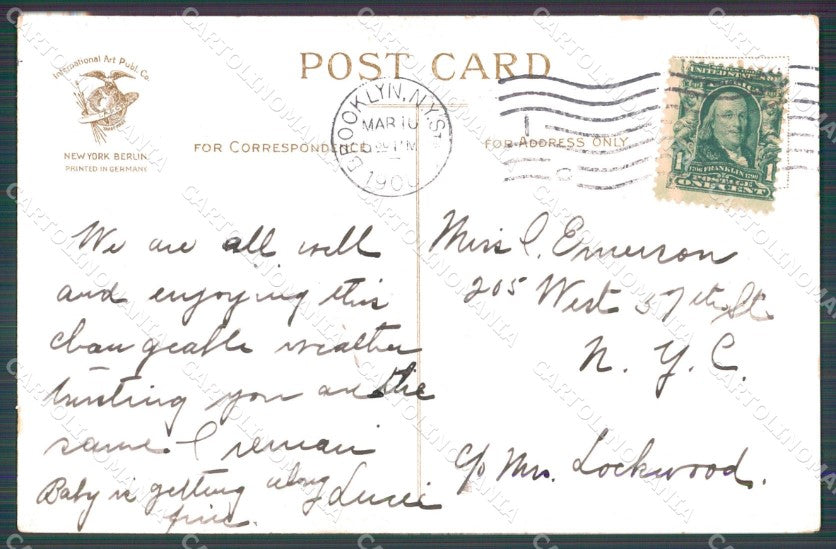 International Art Publ. Co.
NEW YORK BERLIN
PRINTED IN GERMANY
POST CARD
FOR CORRESPONDENCE
FOR ADDRESS ONLY
BROOKLYN, N.Y.
MAR 10
PM
190
UNITED STATES
1706 FRANKLIN 1790
1 1
POSTAGE
ONE CENT
We are all well
and enjoying this
changeable weather
trusting you are the
same I remain
Lucie
Baby is getting along
fine.
Miss C. Emerson
205 West 57th St.
N. Y. C.
c/o Mrs. Lockwood.
CARTOLINOMANIA